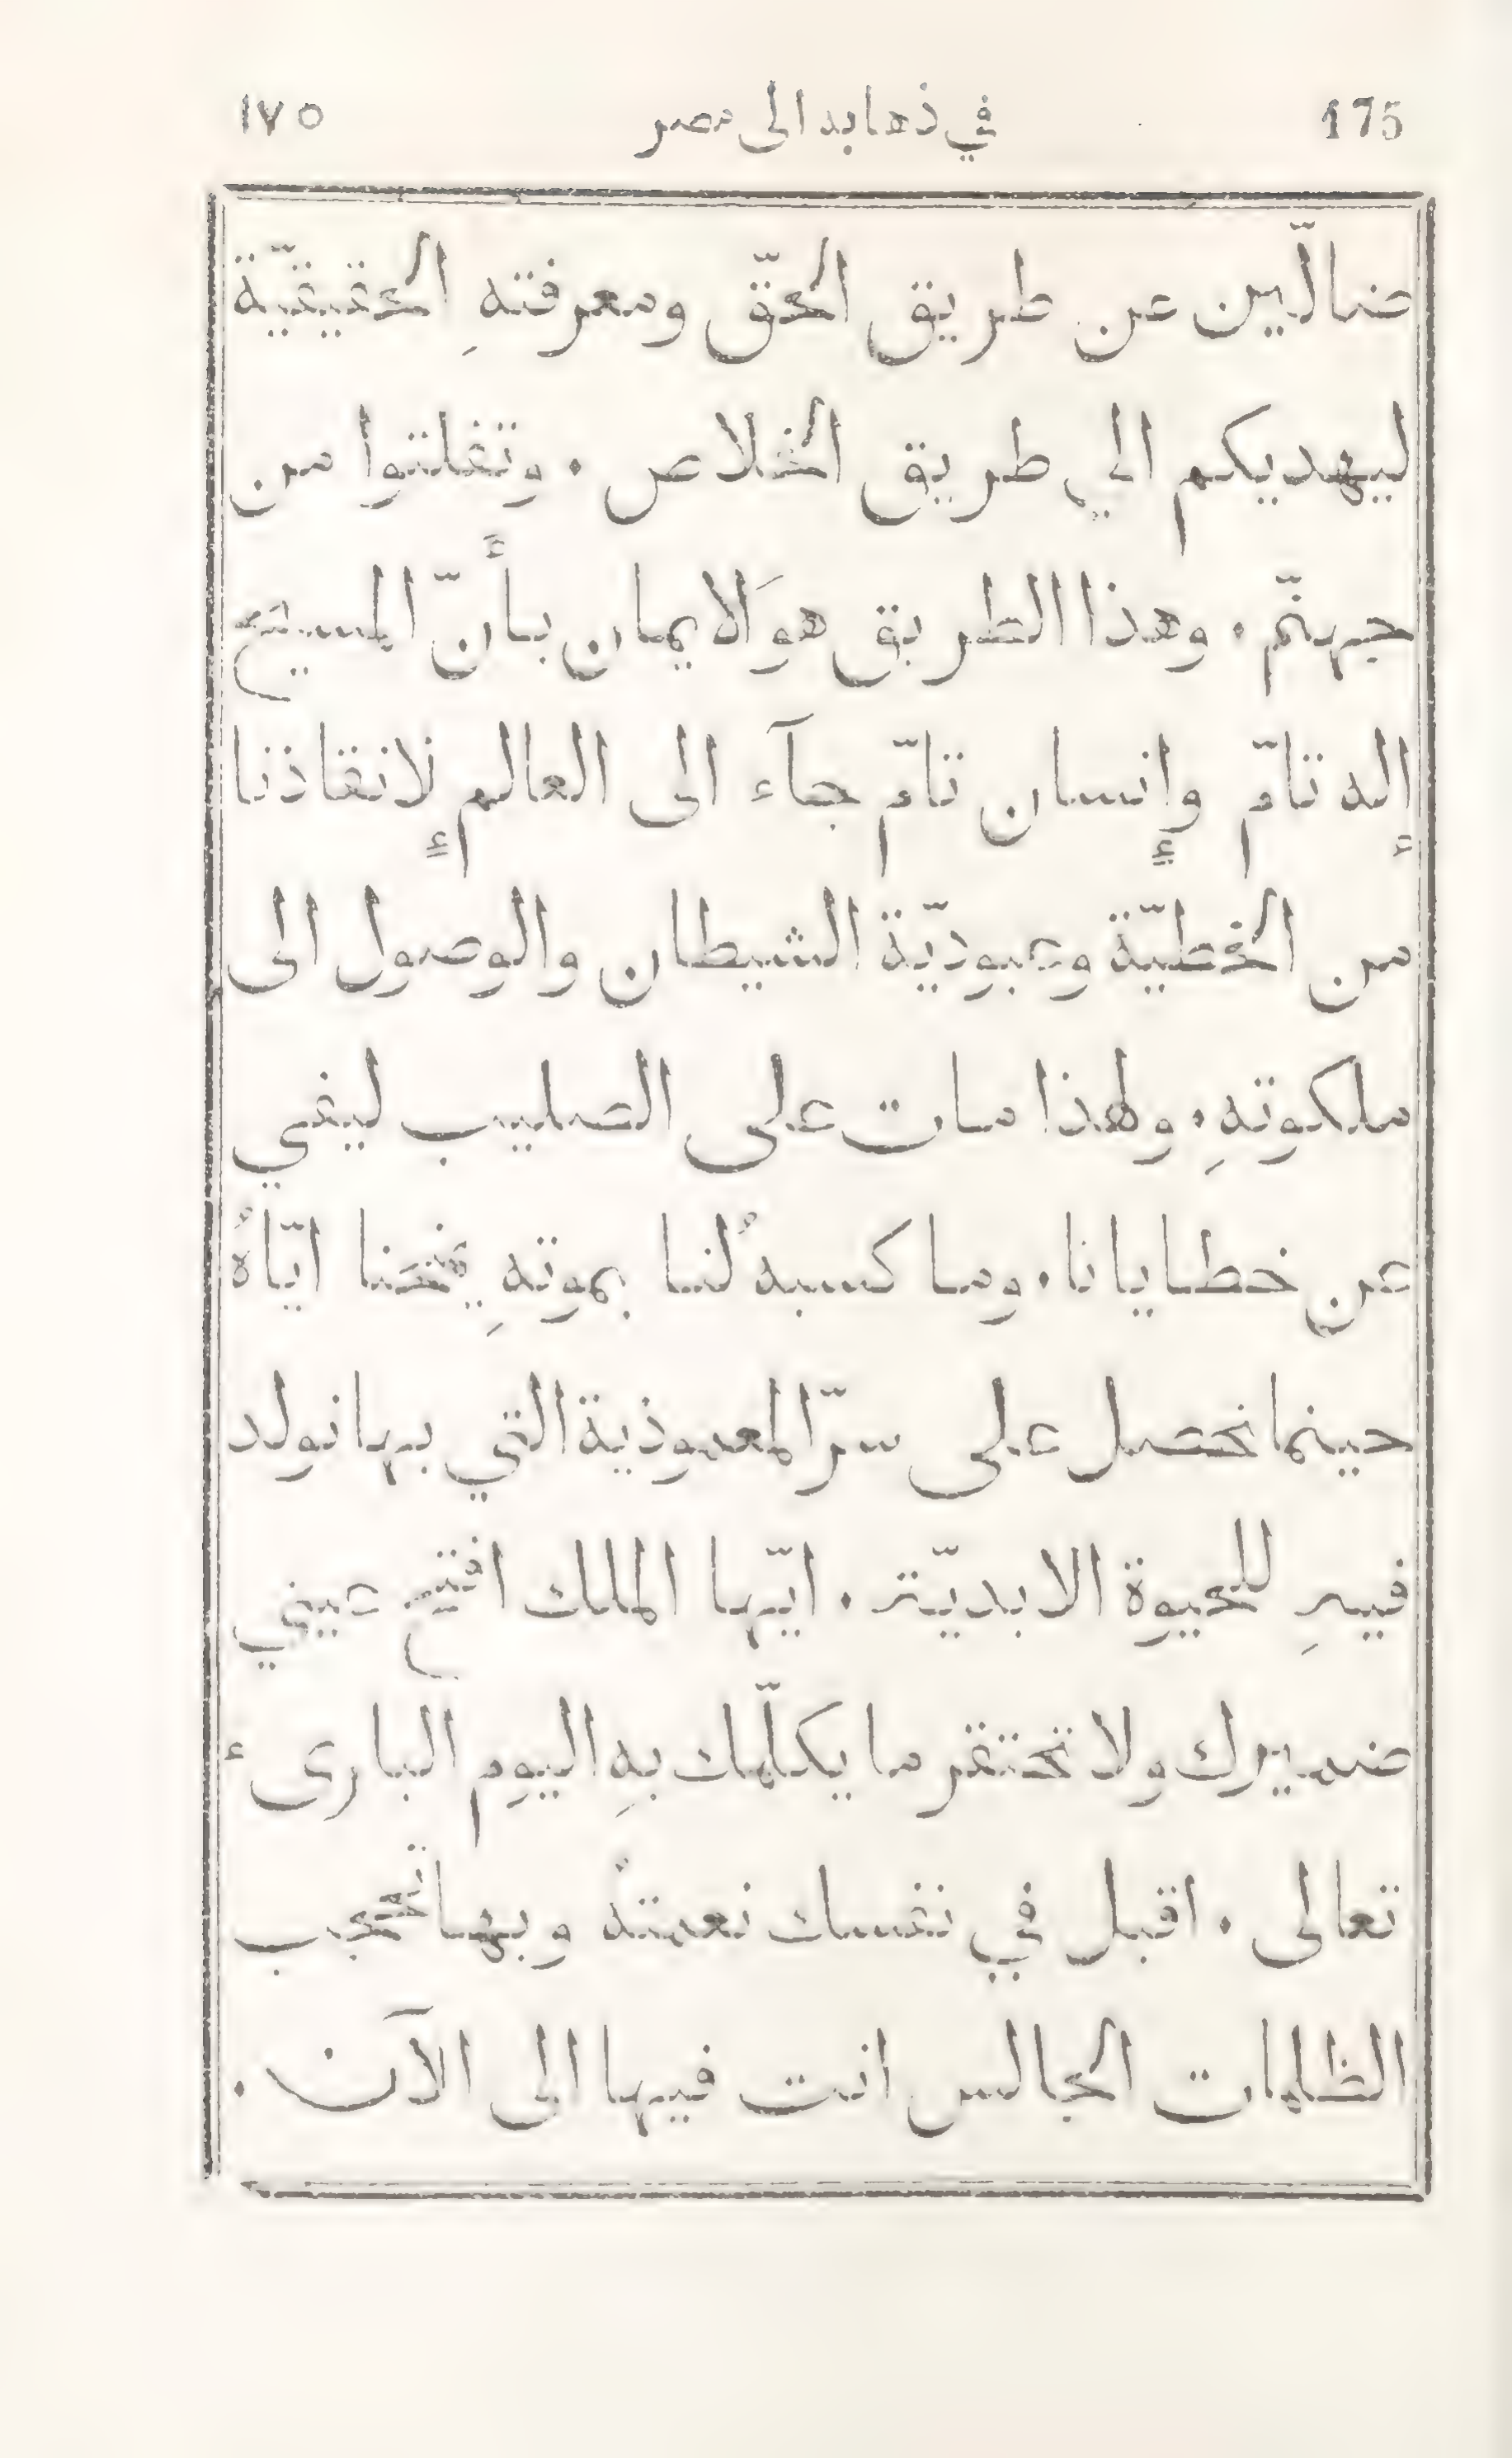 175 في ذهابه الى مصر ١٧٥
ضالّين عن طريق الحقّ ومعرفتهِ الحقيقيّة
ليهديكم الي طريق الخلاص . وتفلتوا من
جهنّم . وهذا الطريق هوَ الايمان بأنّ المسيح
إله تامّ وإنسان تامّ جآء الى العالم لإنقاذنا
من الخطيّة وعبوديّة الشيطان والوصول الى
ملكوتهِ . ولهذا مات على الصليب ليفي
عن خطايانا . وما كسبهُ لنا بموتهِ يمنحنا ايّاهُ
حينما نحصل على سرّ المعموذية التي بها نولد
فيهِ للحيوة الابديّة . ايّها الملك افتح عيني
ضميرك ولا تحتقر ما يكلّمك بهِ اليوم البارىء
تعالى . اقبل في نفسك نعمتهُ وبها تحجب
الظلمات الجالس انت فيها الى الآن .